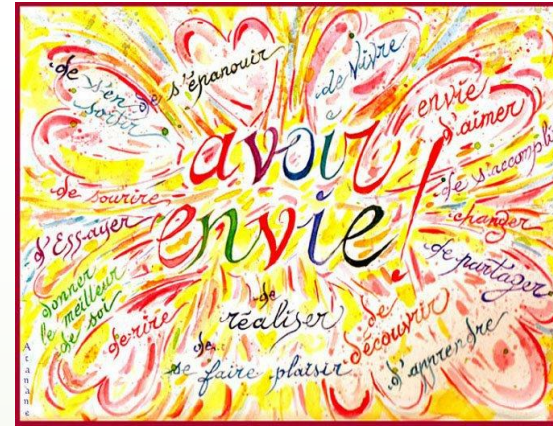 de s'en
sortir
de s'épanouir
de vivre
envie
d'aimer
avoir
envie!
de s'accompli
changer
de partager
de sourire
d'Essayer
donner
le meilleur
de soi
de rire
de
réaliser
de
se faire plaisir
de
découvrir
d'apprendre
Atanane